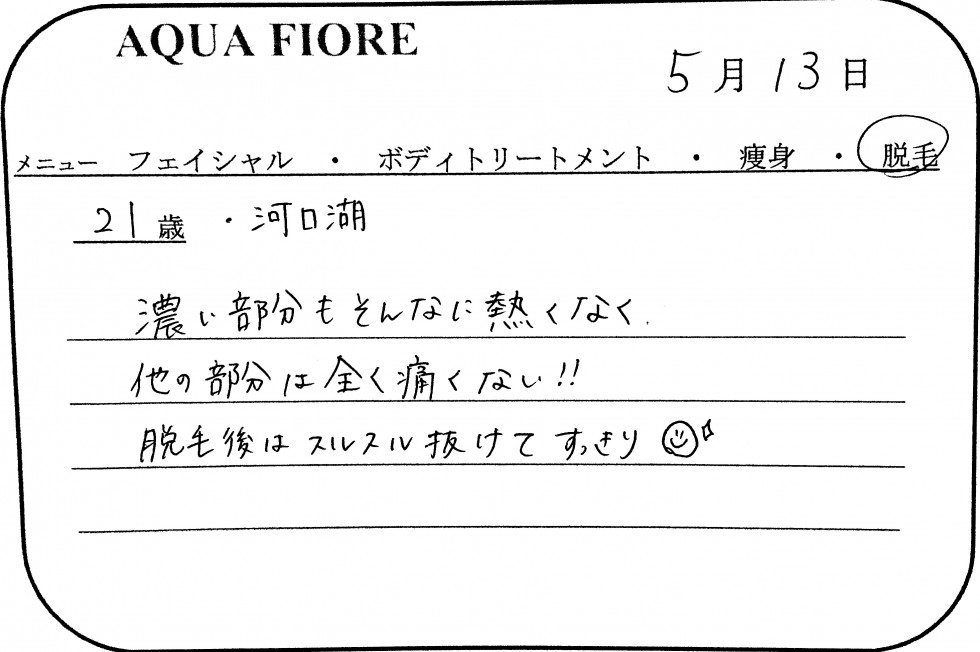 AQUA FIORE
5月13日
メニュー フェイシャル ・ ボディトリートメント ・ 痩身 ・ 脱毛
21歳 ・河口湖
濃い部分もそんなに熱くなく、
他の部分は全く痛くない!!
脱毛後はスルスル抜けてすっきり